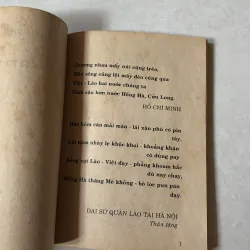 Thương nhau mấy núi cũng trèo,
Mấy sông cũng lội mấy đèo cũng qua
Việt - Lào hai nước chúng ta
Tình sâu hơn nước Hồng Hà, Cửu Long.
HỒ CHÍ MINH
Hai hôm căn mải măn - lải nặm phù có pin
táy.
Lải nặm nhày lẹ khốc khoi - khoảng khăn
có dùng pay
Sòng xạt Lào - Việt đạy - phẳng khoam hắc
dù nay chay,
Hồng Hà thăng Mẻ không - bò lọc pua pán
dạy.
ĐẠI SỨ QUÁN LÀO TẠI HÀ NỘI
Thân tặng
1